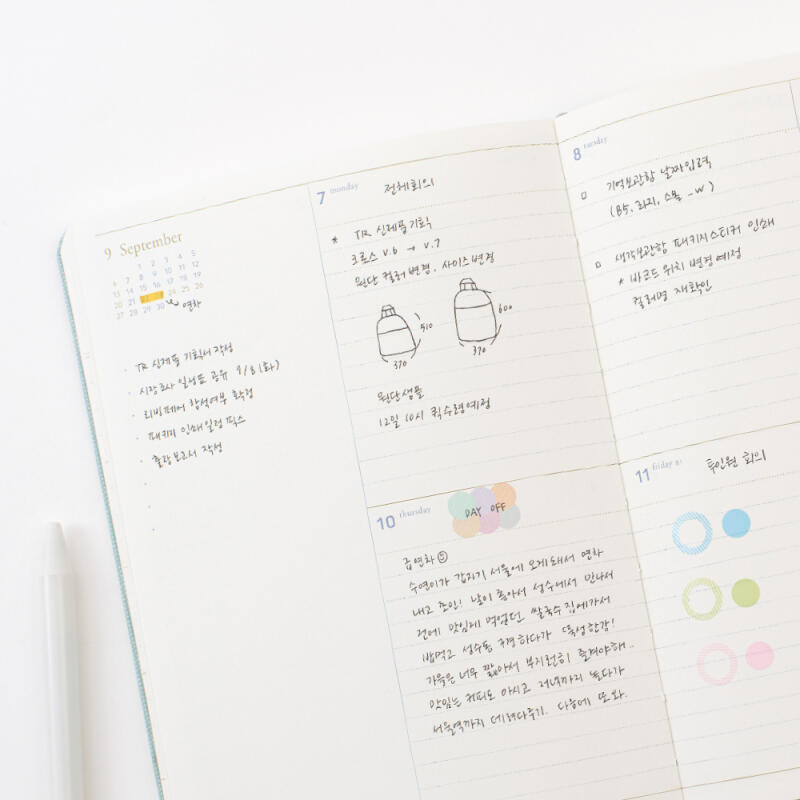 9 September
1 2 3 4 5
6 7 8 9 10 11 12
13 14 15 16 17 18 19
20 21 24 25 26
27 28 29 30
연차
· TR 신제품 기획서 작성
· 시장조사 일정표 공유 9/8 (화)
· 리빙페어 참석여부 확정
· 패키지 인쇄일정 픽스
· 출장보고서 작성
7 monday
전체회의
* TR 신제품 기획
크로스 v.6 → v.7
원단 컬러변경, 사이즈변경
510
370
600
370
원단샘플
12일 10시 퀵수령예정
8 tuesday
□ 기억보관함 날짜입력
(B5, 라지, 스몰 -W)
□ 생각보관함 패키지스티커 인쇄
* 바코드 위치 변경예정
컬러명 재확인
10 thursday
DAY OFF
급연차
수연이가 갑자기 서울에 오게돼서 연차
내고 조인! 날이 좋아서 성수에서 만나서
전에 맛있게 먹었던 쌀국수 집에가서
밥먹고 성수동 구경하다가 득성한감!
가을은 너무 짧아서 부지런히 즐겨야해..
맛있는 커피도 마시고 저녁까지 놀다가
서울역까지 데려다주기. 다음에 또 와.
11 friday
투인원 회의